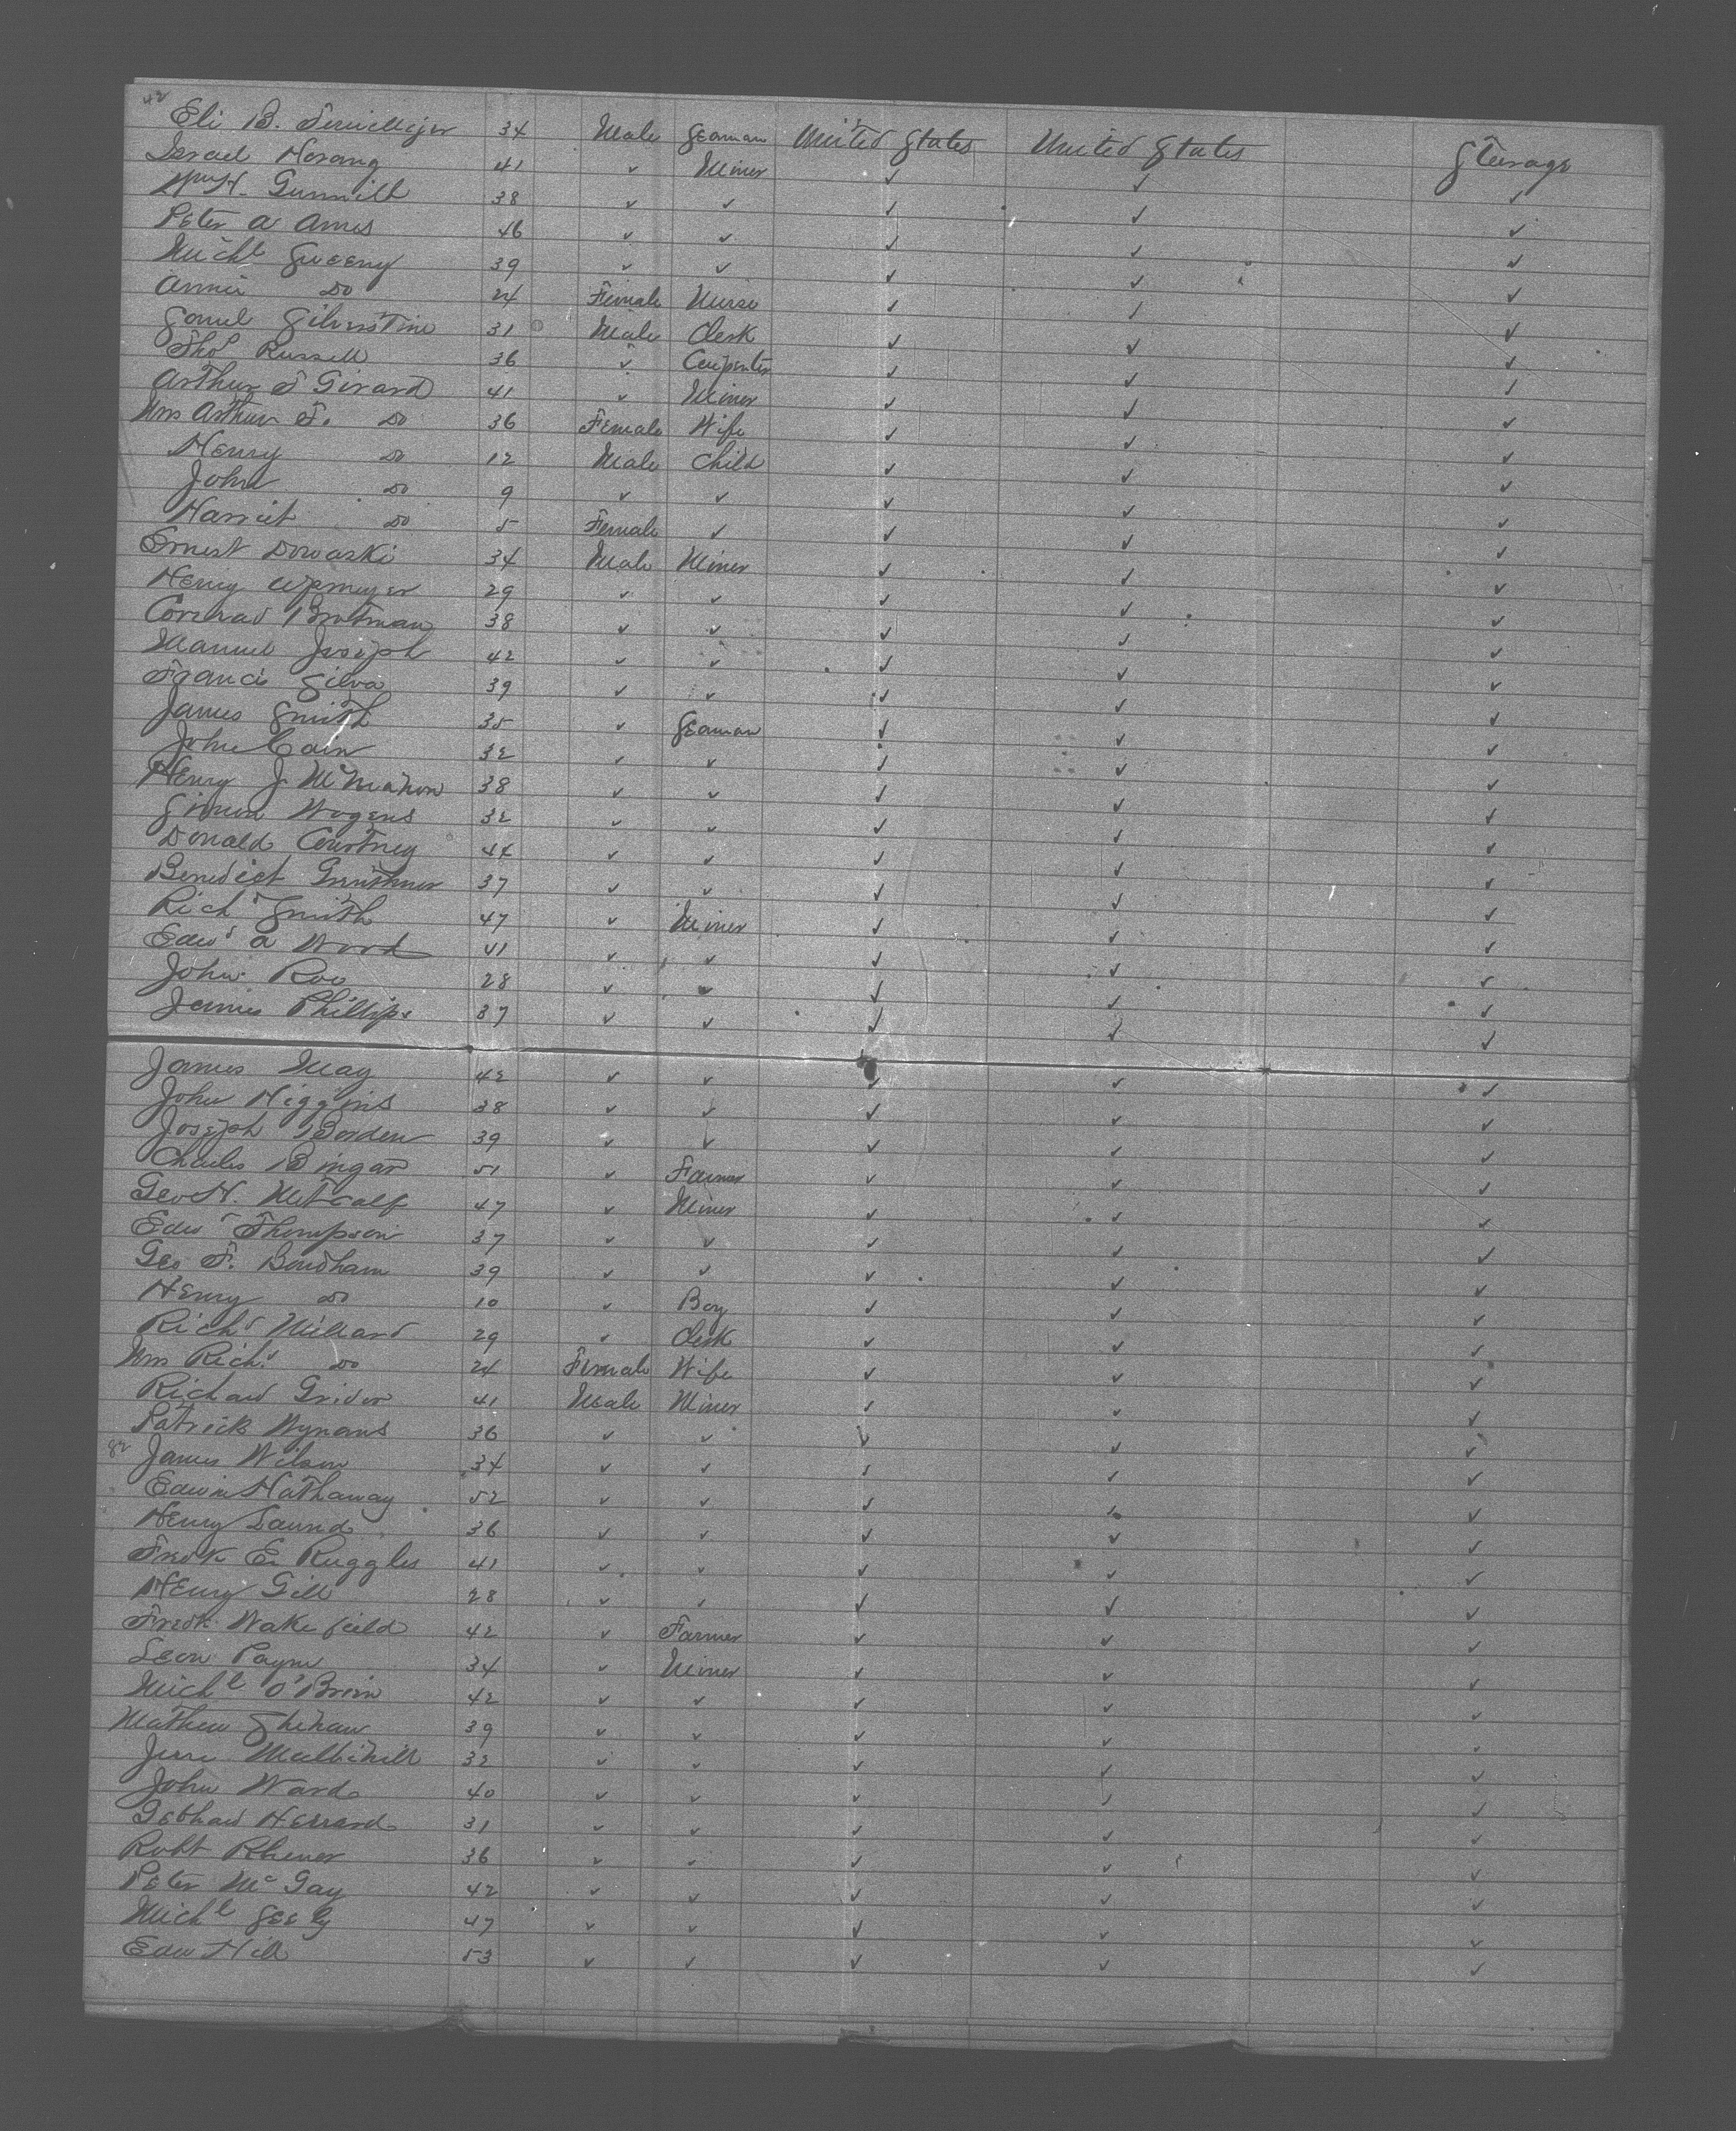 42
Eli B. 34 Male Seaman United States United States Steerage
Israel Horang 41 ✓ Miner ✓ ✓ ✓
Wm H. Gummill 38 ✓ ✓ ✓ ✓ ✓
Peter A Ames 46 ✓ ✓ ✓ ✓ ✓
Michl Sweeny 39 ✓ ✓ ✓ ✓ ✓
Annie Do 24 Female Nurse ✓ ✓ ✓
Saml Silverstine 31 Male Clerk ✓ ✓ ✓
Thos Russell 36 ✓ Carpenter ✓ ✓ ✓
Arthur F Girard 41 ✓ Miner ✓ ✓ ✓
Mrs Arthur F. Do 36 Female Wife ✓ ✓ ✓
Henry Do 12 Male Child ✓ ✓ ✓
John Do 9 ✓ ✓ ✓ ✓ ✓
Harriet Do 5 Female ✓ ✓ ✓ ✓
Ernest Dowaski 34 Male Miner ✓ ✓ ✓
Henry Upmeyer 29 ✓ ✓ ✓ ✓ ✓
Conrad Brotman 38 ✓ ✓ ✓ ✓ ✓
Manuel Joseph 42 ✓ ✓ ✓ ✓ ✓
Francis Silva 39 ✓ ✓ ✓ ✓ ✓
James Smith 35 ✓ Seaman ✓ ✓ ✓
John Cain 32 ✓ ✓ ✓ ✓ ✓
Henry J McMahon 38 ✓ ✓ ✓ ✓ ✓
Simon Wogens 32 ✓ ✓ ✓ ✓ ✓
Donald Courtney 44 ✓ ✓ ✓ ✓ ✓
Benedict 37 ✓ ✓ ✓ ✓ ✓
Richd Smith 47 ✓ Miner ✓ ✓ ✓
Edwd A Wood 41 ✓ ✓ ✓ ✓ ✓
John Roe 28 ✓ ✓ ✓ ✓ ✓
James Phillips 37 ✓ ✓ ✓ ✓ ✓
James May 42 ✓ ✓ ✓ ✓ ✓
John Higgins 38 ✓ ✓ ✓ ✓ ✓
Joseph Borden 39 ✓ ✓ ✓ ✓ ✓
Charles Bingar 51 ✓ Farmer ✓ ✓ ✓
Geo H. Metcalf 47 ✓ Miner ✓ ✓ ✓
Edwd Thompson 37 ✓ ✓ ✓ ✓ ✓
Geo F. Bondham 39 ✓ ✓ ✓ ✓ ✓
Henry Do 10 ✓ Boy ✓ ✓ ✓
Richd Millard 29 ✓ Clerk ✓ ✓ ✓
Mrs Richd Do 24 Female Wife ✓ ✓ ✓
Richard Grider 41 Male Miner ✓ ✓ ✓
Patrick Wynans 36 ✓ ✓ ✓ ✓ ✓
82 James Wilson 34 ✓ ✓ ✓ ✓ ✓
Edwin Hathaway 52 ✓ ✓ ✓ ✓ ✓
Henry Laurid 36 ✓ ✓ ✓ ✓ ✓
Fredk E. Ruggles 41 ✓ ✓ ✓ ✓ ✓
Henry Gill 28 ✓ ✓ ✓ ✓ ✓
Fredk Wakefield 42 ✓ Farmer ✓ ✓ ✓
Leon Payne 34 ✓ Miner ✓ ✓ ✓
Michl O'Brien 42 ✓ ✓ ✓ ✓ ✓
Mathew Shehan 39 ✓ ✓ ✓ ✓ ✓
Jesse Mulbihill 32 ✓ ✓ ✓ ✓ ✓
John Ward 40 ✓ ✓ ✓ ✓ ✓
Gebhard Herrard 31 ✓ ✓ ✓ ✓ ✓
Robt Rhener 36 ✓ ✓ ✓ ✓ ✓
Peter McGay 42 ✓ ✓ ✓ ✓ ✓
Michl Seely 47 ✓ ✓ ✓ ✓ ✓
Edw Hill 53 ✓ ✓ ✓ ✓ ✓